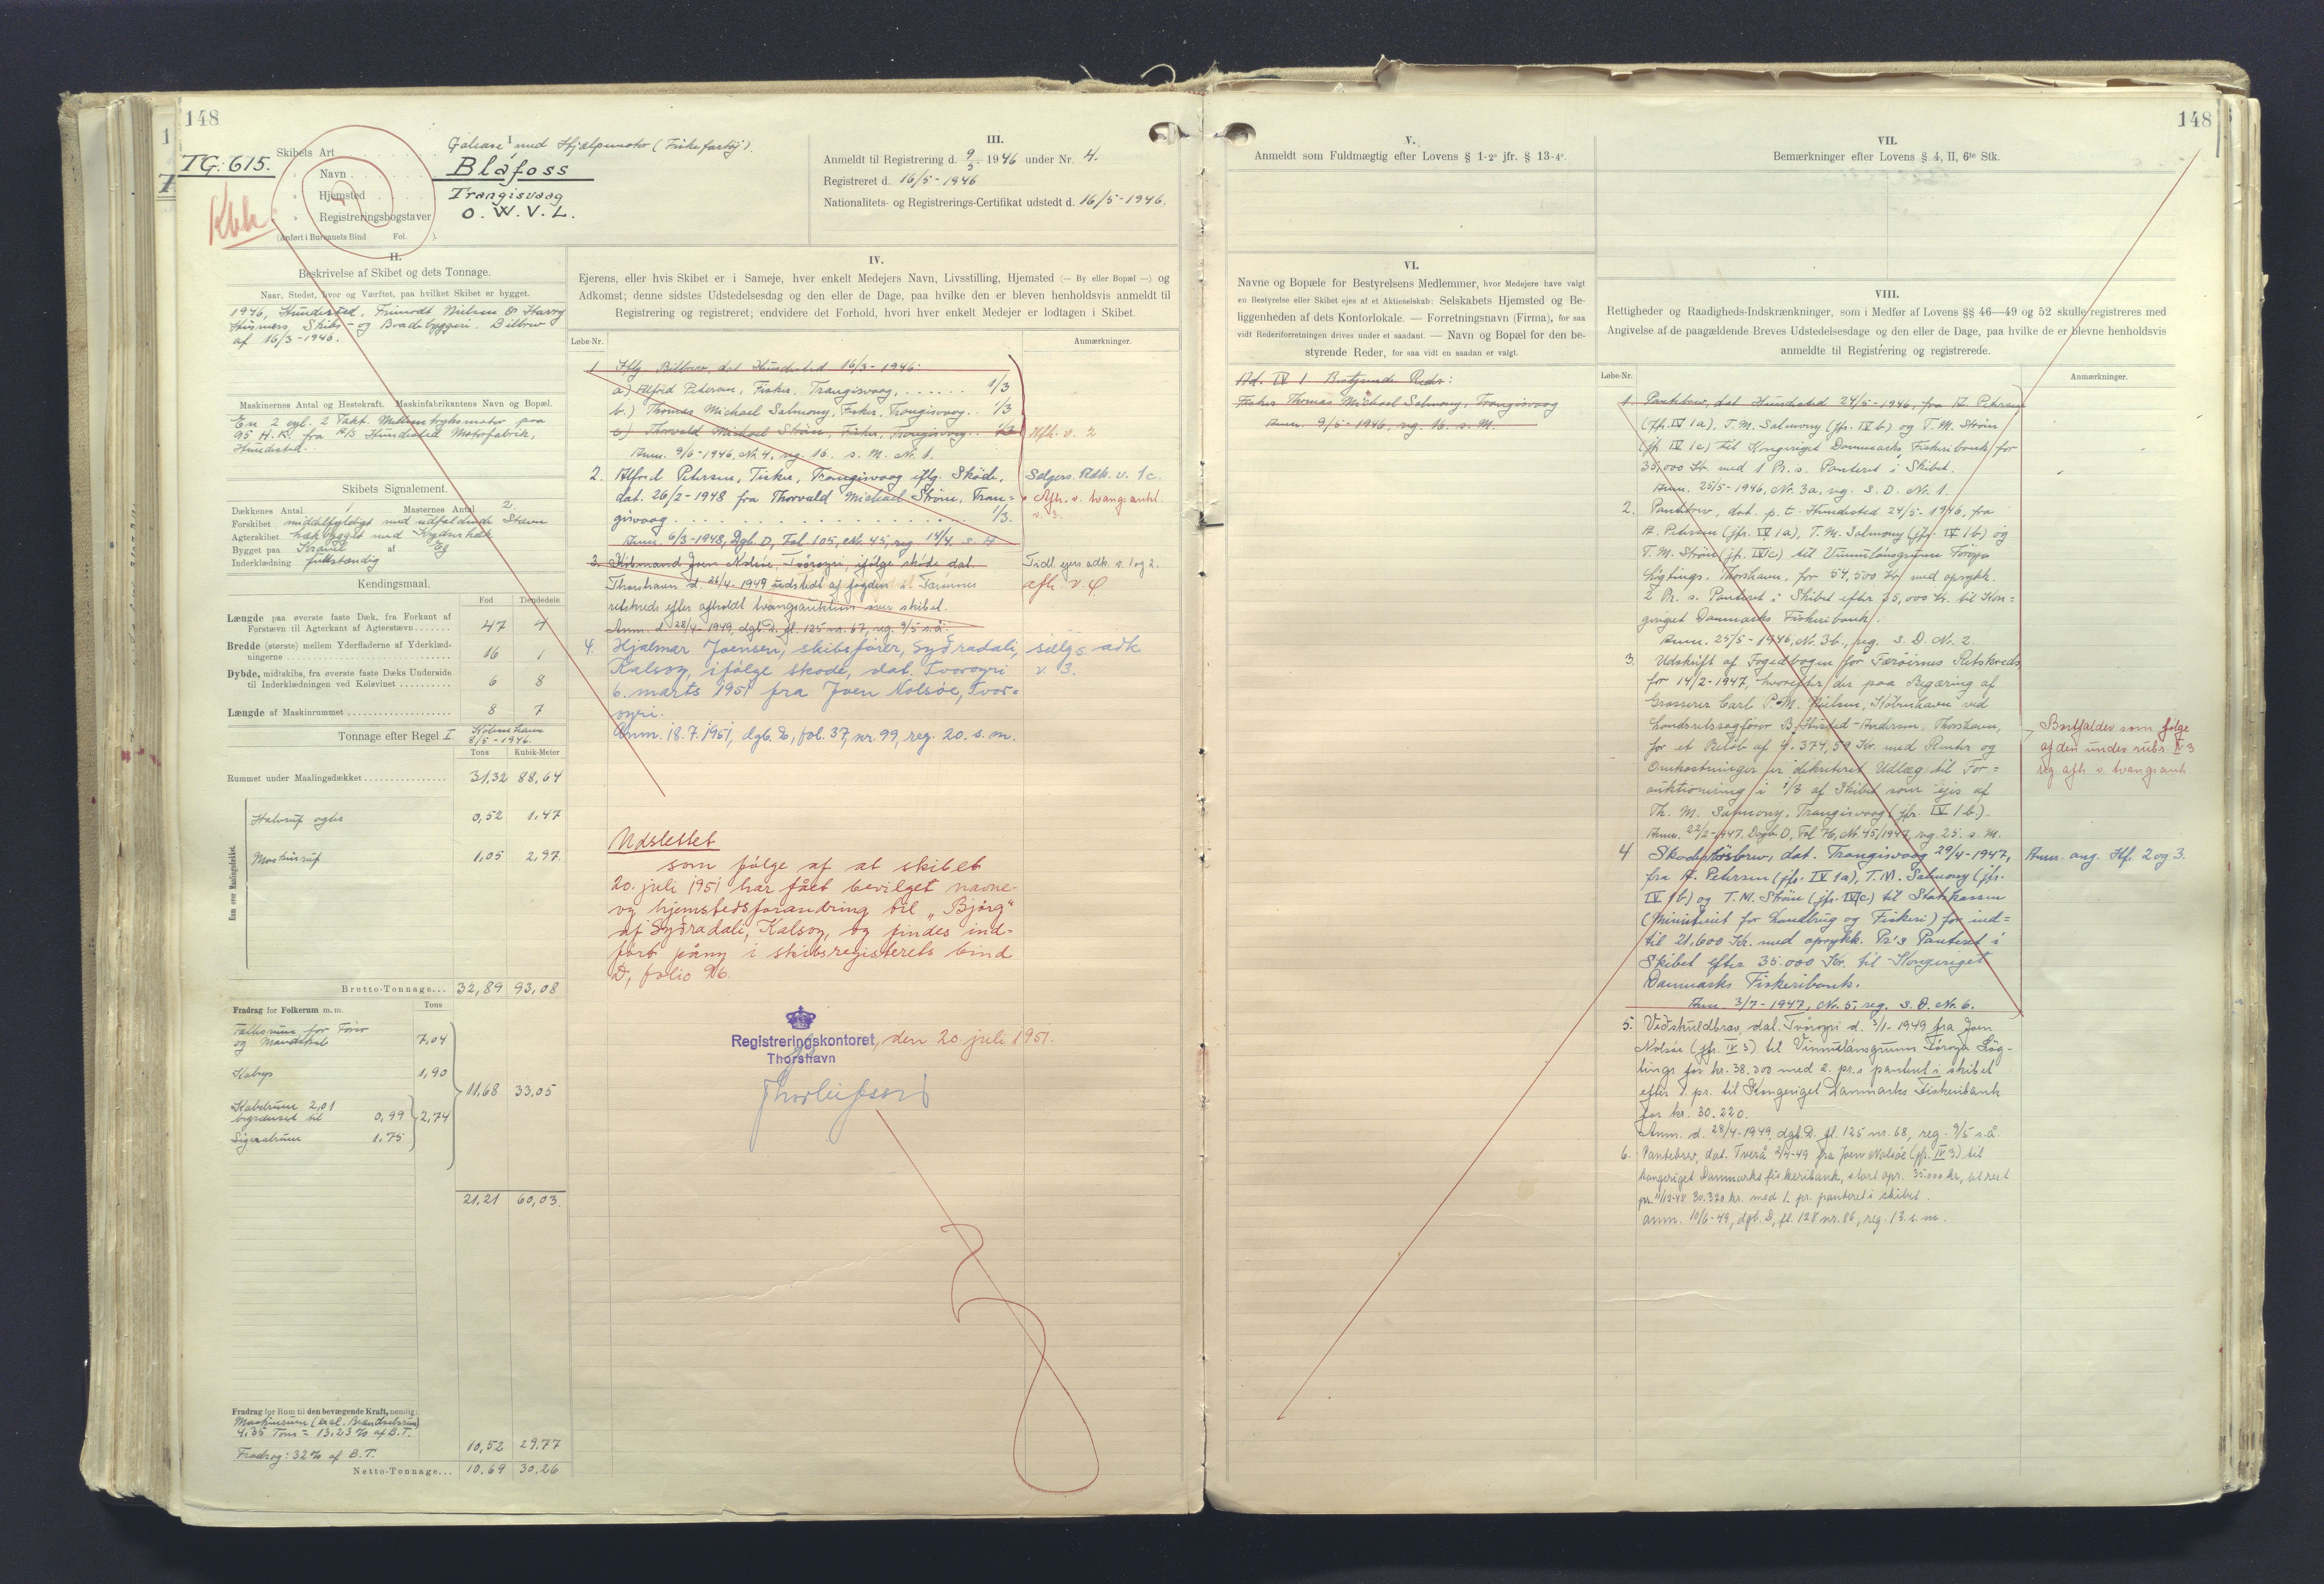 148
TG. 615.
Kbh
I.
Skibets Art Galease med Hjælpemotor (Fiskefartøj).
" Navn Blåfoss
" Hjemsted Trangisvaag
" Registreringsbogstaver O. W. V. L.
(Anført i Bureauets Bind Fol. ).
II.
Beskrivelse af Skibet og dets Tonnage.
Naar, Stedet, hvor og Værftet, paa hvilket Skibet er bygget.
1946, Hundested, Nielsen & Harry
Skibs- og Baadebyggeri. Bilbrev
af 16/3-1946.
Maskinernes Antal og Hestekraft. Maskinfabrikantens Navn og Bopæl.
En 2 cyl. 2 Takt. Mellemtryksmotor paa
95 H.K. fra A/S Hundested Motorfabrik,
Hundested.
Skibets Signalement.
Dækkenes Antal 1 Masternes Antal 2.
Forskibet middelfyldigt med udfaldende Stævn
Agterskibet hækbygget med Krydserhæk
Bygget paa Kravel af Eg
Inderklædning fuldstændig
Kendingsmaal.
Fod Tiendedele
Længde paa øverste faste Dæk, fra Forkant af
Forstævn til Agterkant af Agterstævn 47 4
Bredde (største) mellem Yderfladerne af Yderklæd-
ningerne 16 1
Dybde, midtskibs, fra øverste faste Dæks Underside
til Inderklædningen ved Kølsvinet 6 8
Længde af Maskinrummet 8 7
Tonnage efter Regel I. København
8/5-1946.
Tons Kubik-Meter
Rummet under Maalingsdækket 31,32 88,64
Rum over Maalingsdækket.
Halvruf agter 0,52 1,47
Maskinruf 1,05 2,97
Brutto-Tonnage... 32,89 93,08
Fradrag for Folkerum m. m. Tons
Folkerum for Fører
og Mandskab 7,04
Kabys 1,90
11,68 33,05
Kabelrum 2,01
begrænset til 0,99
2,74
Sejlrum 1,75
21,21 60,03
Fradrag for Rum til den bevægende Kraft, nemlig:
Maskinrum (excl. Brændselsrum)
4,35 Tons = 13,23% af B.T.
Fradrag: 32% af B.T. 10,52 29.77
Netto-Tonnage... 10,69 30,26
III.
Anmeldt til Registrering d. 9/5 1946 under Nr. 4.
Registreret d. 16/5-1946
Nationalitets- og Registrerings-Certifikat udstedt d. 16/5-1946.
IV.
Ejerens, eller hvis Skibet er i Sameje, hver enkelt Medejers Navn, Livsstilling, Hjemsted (— By eller Bopæl —) og
Adkomst; denne sidstes Udstedelsesdag og den eller de Dage, paa hvilke den er bleven henholdsvis anmeldt til
Registrering og registreret; endvidere det Forhold, hvori hver enkelt Medejer er lodtagen i Skibet.
Løbe-Nr. Anmærkninger.
1 Iflg. Bilbrev, dat Hundested 16/3-1946:
a) Alfred Petersen, Fisker, Trangisvaag, 1/3
b.) Thomas Michael Salmony, Fisker, Trangisvaag.. 1/3
c) Thorvald Michael Strøm, Fisker, Trangisvaag.. 1/3 Afh. v. 2
Anm. 9/5-1946, Nr. 4, reg. 16. s. M. Nr. 1.
2. Alfred Petersen, Fisker, Trangisvaag iflg. Skøde, Sælgers Adk. v. 1c.
dat. 26/2-1948 fra Thorvald Michael Strøm, Tran= Afh. v. tvangsaukt.
gisvaag 1/3. v. 3.
Anm. 6/3-1948, Dgb. D, Fol 105, Nr. 45, reg 14/4. s. A
3. Joen Nolsøe, Tvöroyri, ifølge skøde dat. Tidl. ejers adk. v. 1 og 2.
Thorshavn d 26/4-1949 udstedt af fogden i Færøernes afh. v 4
retskreds efter afholdt tvangsauktion over skibet.
Anm. d. 28/4-1949, dgb. D. fl. 125 nr. 67, reg. 9/5 s.å.
4. Hjalmar Joensen, skibsfører, Syðradali, sælgs. adk
Kalsoy, ifølge skøde, dat. Tvöroyri v. 3.
6. marts 1951 fra Joen Nolsöe, Tvør=
oyri.
Anm. 18.7.1951, dgb. D, fol. 37, nr. 99, reg. 20. s. m.
Udslettet
som følge af at skibet
20. juli 1951 har fået bevilget navne-
og hjemstedsforandring til „Bjørg“
af Syðradali, Kalsoy, og findes ind-
ført påny i skibsregisterets bind
D, folio 96.
Registreringskontoret, den 20 juli 1951.
Thorshavn
148
V.
Anmeldt som Fuldmægtig efter Lovens § 1-2° jfr. § 13-4°.
VI.
Navne og Bopæle for Bestyrelsens Medlemmer, hvor Medejere have valgt
en Bestyrelse eller Skibet ejes af et Aktieselskab; Selskabets Hjemsted og Be-
liggenheden af dets Kontorlokale. — Forretningsnavn (Firma), for saa
vidt Rederiforretningen drives under et saadant. — Navn og Bopæl for den be-
styrende Reder, for saa vidt en saadan er valgt.
Ad. IV 1 Bestyrende Reder:
Fisker Thomas Michael Salmony, Trangisvaag
Anm. 9/5-1946, reg. 16. s. M.
VII.
Bemærkninger efter Lovens § 4, II, 6te Stk.
VIII.
Rettigheder og Raadigheds-Indskrænkninger, som i Medfør af Lovens §§ 46—49 og 52 skulle registreres med
Angivelse af de paagældende Breves Udstedelsesdage og den eller de Dage, paa hvilke de er blevne henholdsvis
anmeldte til Registrering og registrerede.
Løbe-Nr. Anmærkninger.
1. Pantebrev, dat Hundested 24/5-1946, fra A. Petersen
(jfr. IV 1a), T.M. Salmony (jfr. IV b) og T.M. Strøm
(jfr IV 1c) til Kongeriget Danmarks Fiskeribank for
35,000 Kr. med 1 Pr. s. Panteret i Skibet.
Anm. 25/5-1946, Nr. 3a, reg. s. D. Nr. 1.
2. Pantebrev, dat. p. t. Hundested 24/5-1946, fra
A. Petersen (jfr. IV 1a), T.M. Salmony (jfr. IV 1b) og
T.M. Strøm (jfr. IV 1c) til Vinnulánsgrunn Føroya
Løgtings, Thorshavn, for 54,500 Kr. med oprykk.
2 Pr. s. Panteret i Skibet efter 35,000 Kr. til Kon=
geriget Danmarks Fiskeribank.
Anm. 25/5-1946, Nr. 3b., reg. s. D. Nr. 2.
3. Udskrift af Fogedbogen for Færøernes Retskreds
for 14/2-1947, hvorefter der paa Begæring af
Grosserer Carl P. M. Nielsen, København ved
Landsretssagfører B. Husted-Andersen, Thorshavn,
for et Beløb af 4.374,59 Kr. med Renter og
Omkostninger er dekreteret Udlæg til For=
auktionering i 1/3 af Skibet som ejes af
Th. M. Salmony, Trangisvaag (jfr. IV 1 b.).
Anm. 22/2-1947, Dagb. D, Fol. 76, Nr. 45/1947, reg. 25. s. M.
Bortfalder som følge
af den under rubr. IV 3
reg. afh. v. tvangsaukt.
4 Skadesløsbrev, dat. Trangisvaag 29/4-1947, Anm. ang. Hf. 2 og 3.
fra A. Petersen (jfr. IV 1a), T.M. Salmony (jfr.
IV 1b) og T.M. Strøm (jfr. IV 1c) til Statskassen
(Ministeriet for Landbrug og Fiskeri) for ind=
til 21.600 Kr. med oprykk. Pr's Panteret i
Skibet efter 35.000 Kr. til Kongeriget
Danmarks Fiskeribank.
Anm. 3/7-1947, Nr. 5, reg. s. D. Nr. 6.
5. Veðskuldbræv, dat. Tvöroyri d. 3/1-1949 fra Joen
Nolsöe (jfr. IV 3) til Vinnulánsgrunn Føroya Løg-
tings for kr. 38.300 med 2. pr.s panteret i skibet
efter 1. pr. til Kongeriget Danmarks Fiskeribank
for kr. 30.220.
Anm. d. 28/4-1949, dgb. D. fl. 125 nr. 68, reg. 9/5 s.å.
6. Pantebrev, dat. Tverå 2/4-49 fra Joen Nolsøe (jfr. IV 3) til
kongeriget Danmarks fiskeribank, stort opr. 35.000 kr., til rest
pr. 11/12-48 30.320 kr. med 1. pr. panteret i skibet.
anm. 10/6-49, dgb. D, fl. 128 nr. 86, reg. 13. s. m.